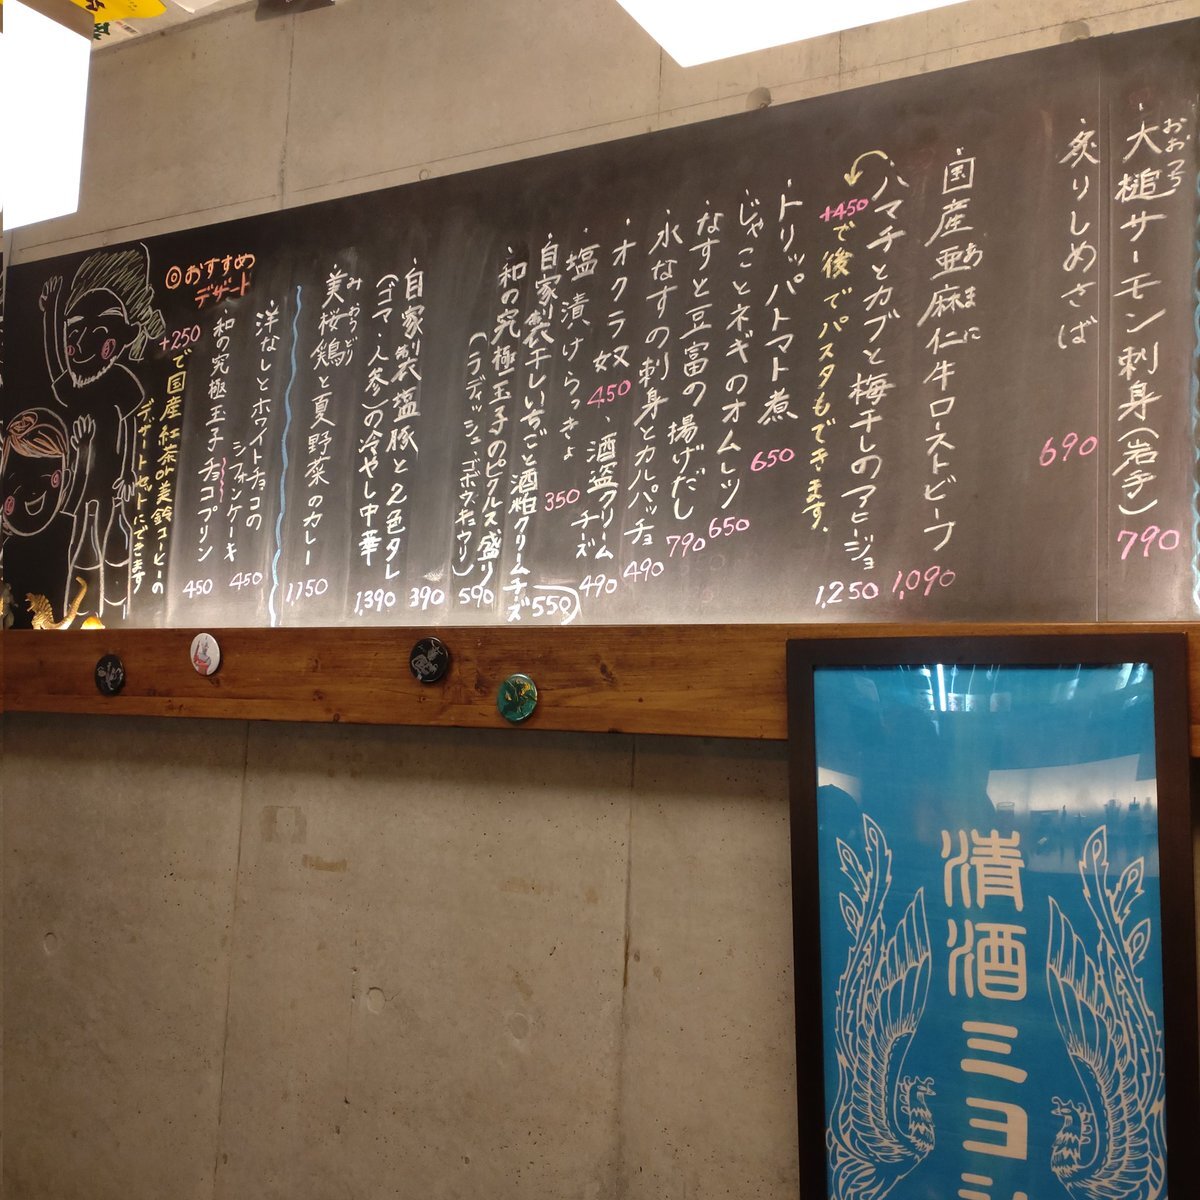 大槌サーモン刺身(岩手)
おおつち
790
炙りしめさば
690
国産亜麻仁牛ローストビーフ
あまに
1,090
ハマチとカブと梅干しのアヒージョ
1,250
+450で後でパスタもできます。
トリッパトマト煮
650
じゃことネギのオムレツ
650
なすと豆富の揚げだし
790
水なすの刺身とカルパッチョ
490
オクラ奴
450
、酒盗クリーム
チーズ
490
塩漬けらっきょ
350
自家製干しいちごと酒粕クリームチーズ
550
和の究極玉子のピクルス盛り
(ラディッシュ、ゴボウ、キュウリ)
590
自家製塩豚と2色タレ
390
(ゴマ・人参)の冷やし中華
1,390
美桜鶏と夏野菜のカレー
みおうどり
1,150
◎おすすめ
デザート
洋なしとホワイトチョコの
シフォンケーキ
450
和の究極玉子チョコプリン
450
+250で国産紅茶or美鈴コーヒーの
デザートセットにできます
清酒ミヨシ